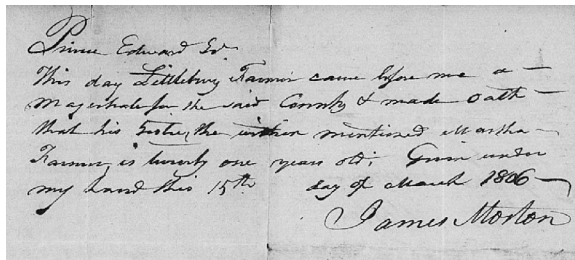 Prince Edward Co.
This day Littlebury Farmer came before me a
Magistrate for the said County & made Oath
that his Sister, the within mentioned Martha
Farmer is twenty one years old; Given under
my hand this 15th day of March 1806
James Morton